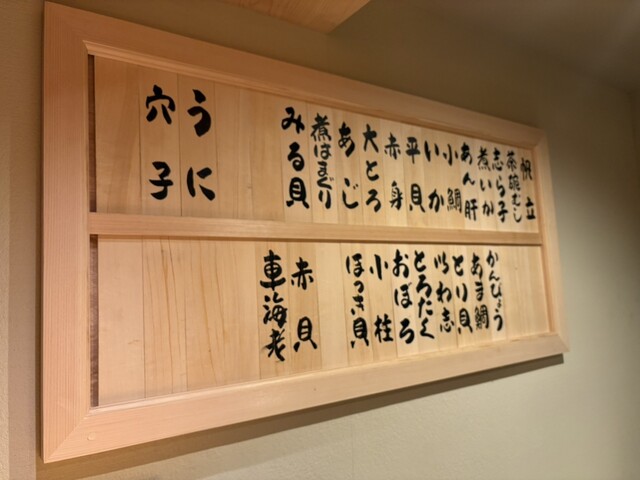 帆立
茶碗むし
志ら子
煮いか
あん肝
小鯛
いか
平貝
赤身
大とろ
あじ
煮はまぐり
みる貝
うに
穴子
かんぴょう
あま鯛
とり貝
いわ志
とろたく
おぼろ
小柱
ほっき貝
赤貝
車海老